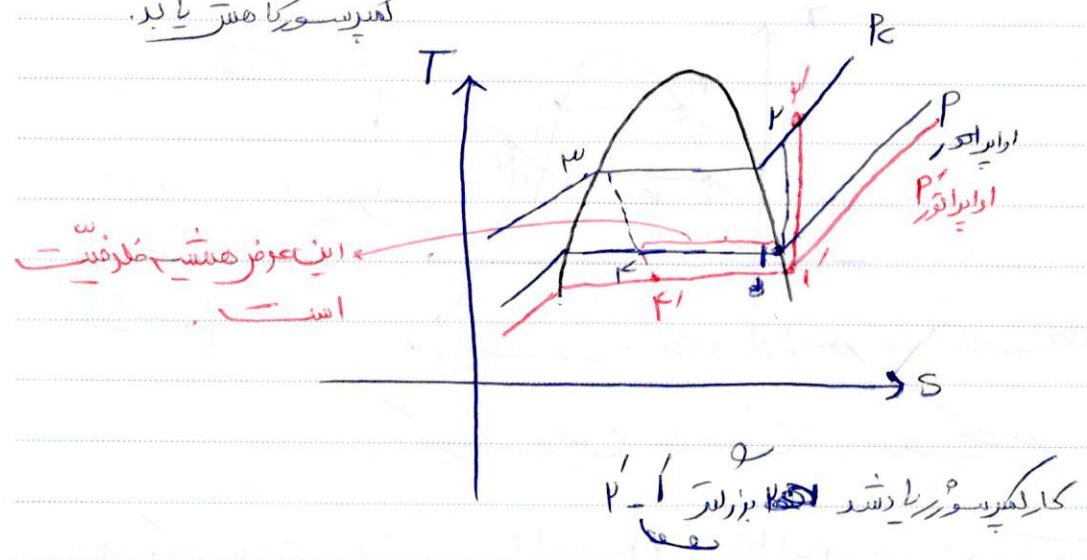 کمپرسور کاهش یابد.
T
Pc
۲
۲′
P
اواپراتور
P′
اواپراتور
۳
۱
۴
۱′
۴′
این عرض همیشه ظرفیت
است.
S
کار کمپرسور زیاد شد بزرگتر ۱′-۲′